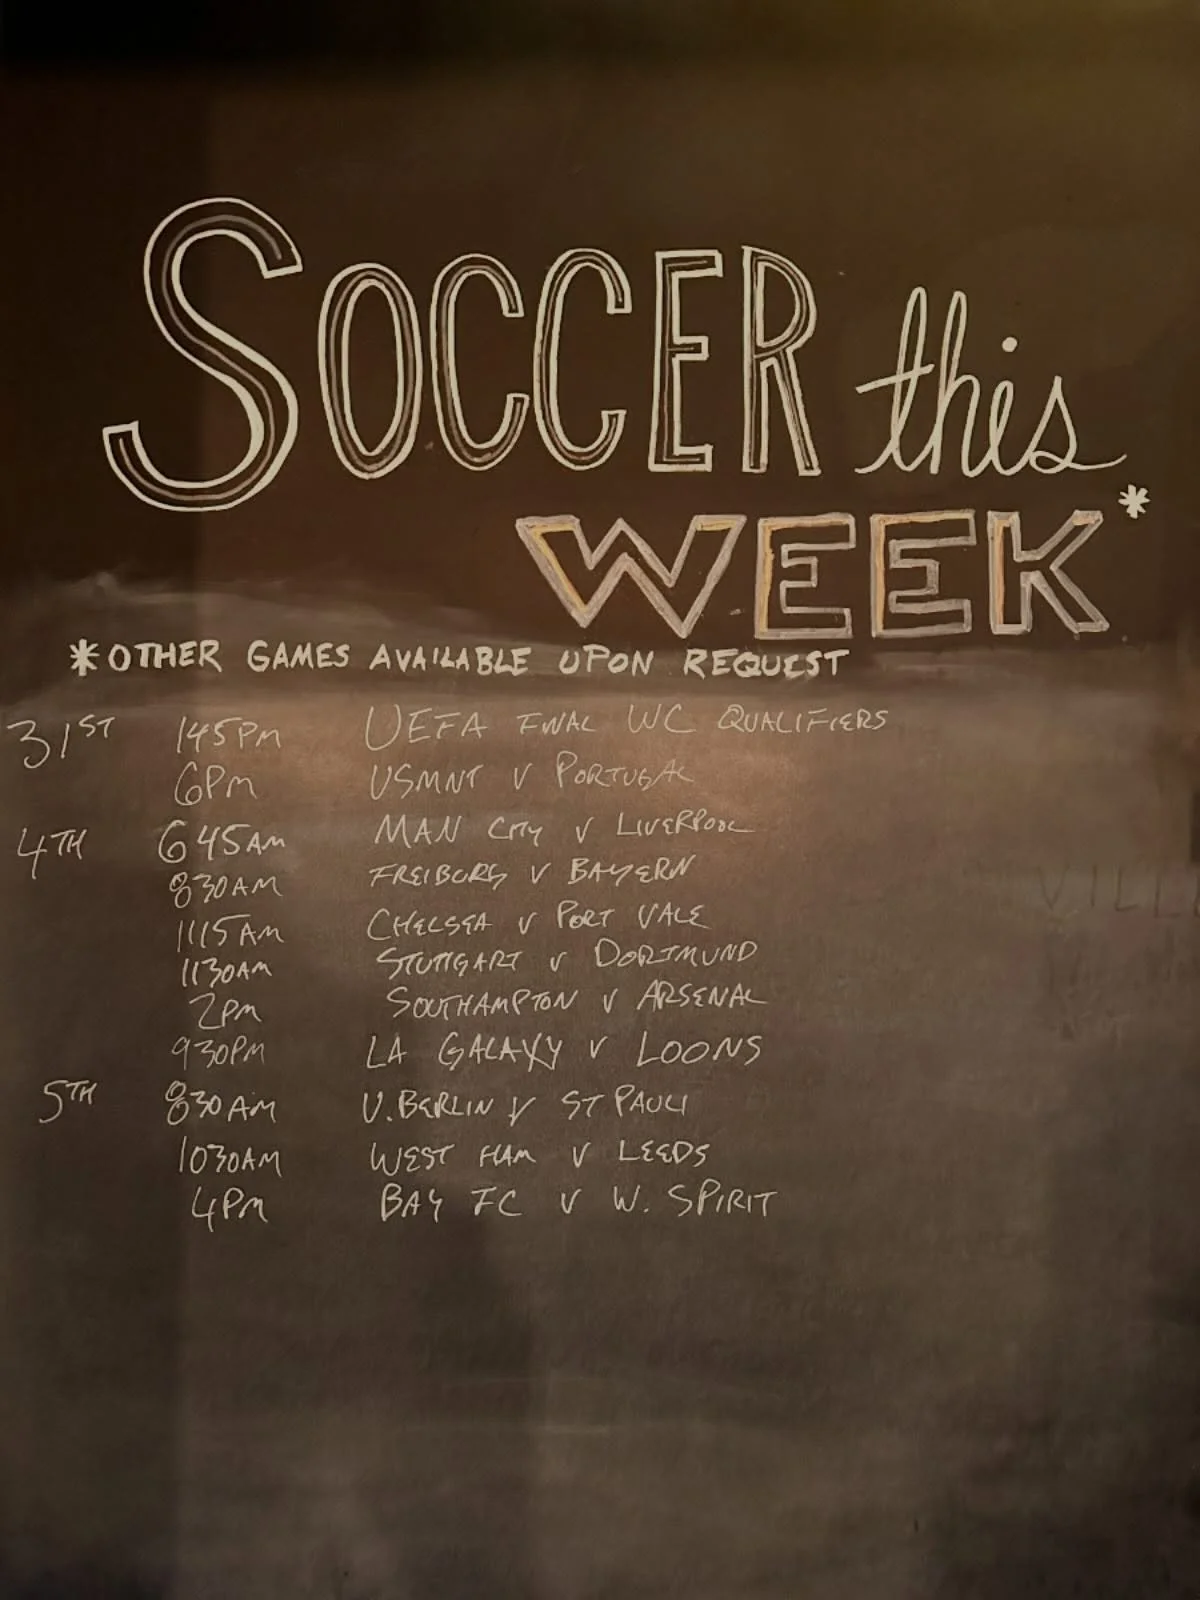 SOCCER this
WEEK*
*OTHER GAMES AVAILABLE UPON REQUEST
31ST 145PM UEFA FINAL WC QUALIFIERS
6PM USMNT V PORTUGAL
4TH 645AM MAN CITY V LIVERPOOL
830AM FREIBURG V BAYERN
1115AM CHELSEA V PORT VALE
1130AM STUTTGART V DORTMUND
2PM SOUTHAMPTON V ARSENAL
930PM LA GALAXY V LOONS
5TH 830AM U.BERLIN V ST PAULI
1030AM WEST HAM V LEEDS
4PM BAY FC V W. SPIRIT